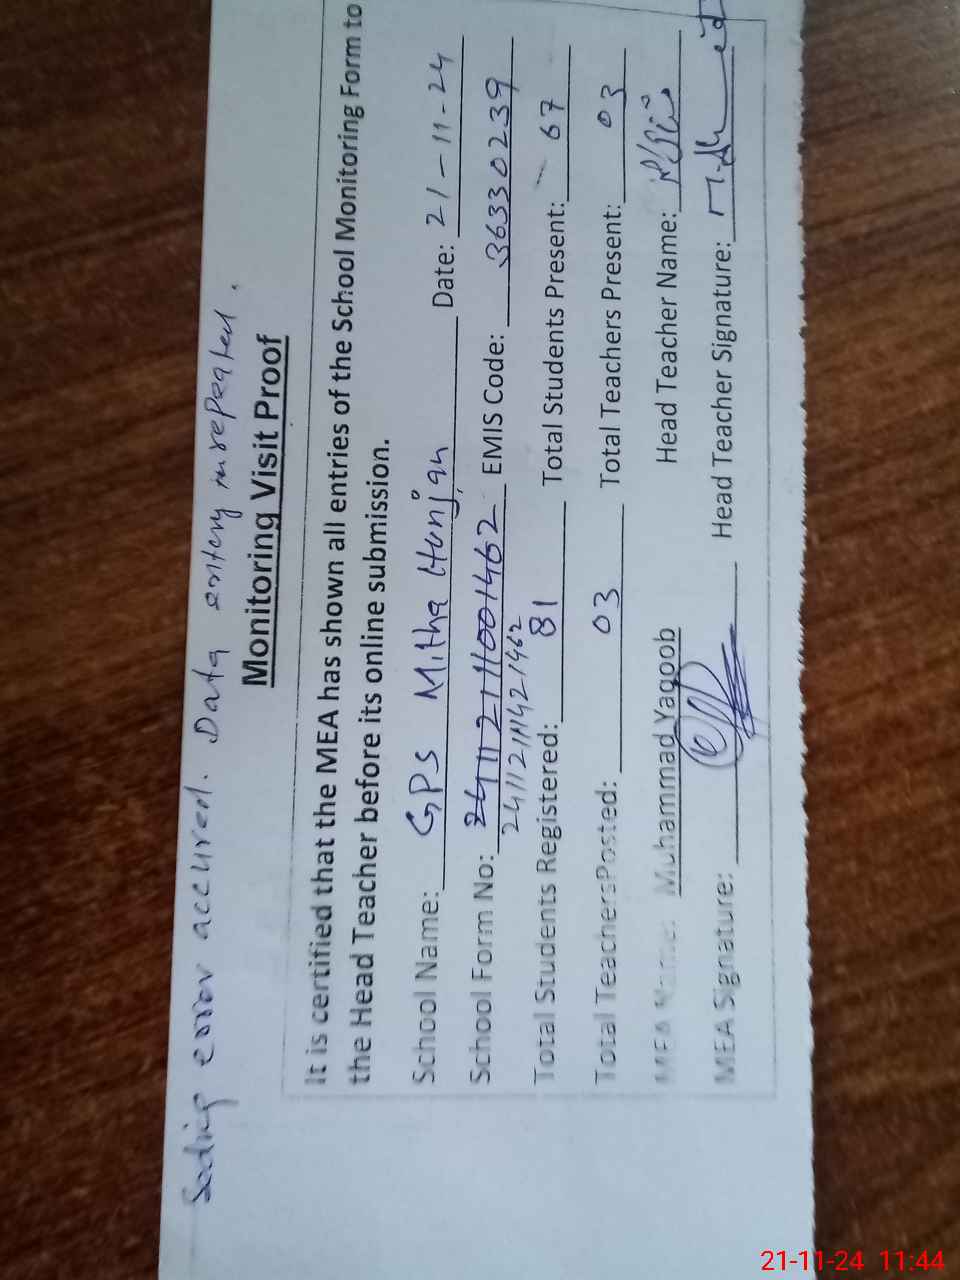 Sading error accured. Data entery is repeated.
Monitoring Visit Proof
It is certified that the MEA has shown all entries of the School Monitoring Form to
the Head Teacher before its online submission.
School Name: GPS Mitha Hanjan Date: 21-11-24
School Form No: EMIS Code: 36330239
Total Students Registered: 81 Total Students Present: 67
Total TeachersPosted: 03 Total Teachers Present: 03
MEA Name: Muhammad Yaqoob Head Teacher Name:
MEA Signature: Head Teacher Signature:
21-11-24 11:44